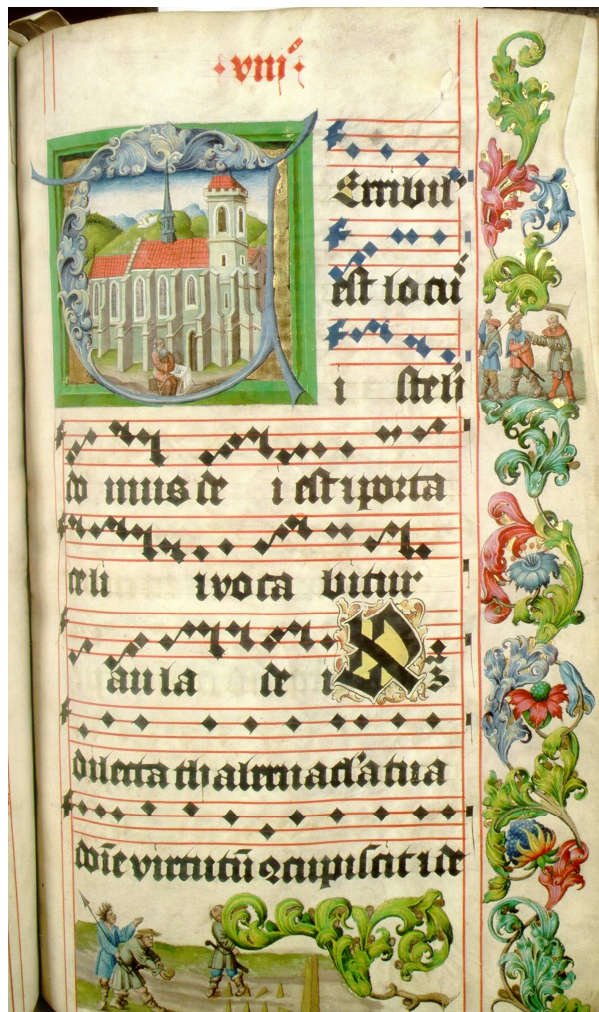 viiij
Terribil'
est locu
i steli
do mus de i est porta
celi i voca bitur
aula de i Qz
dilecta thabernacl'a tua
dōīe virtutū ꝯcupiscit i de